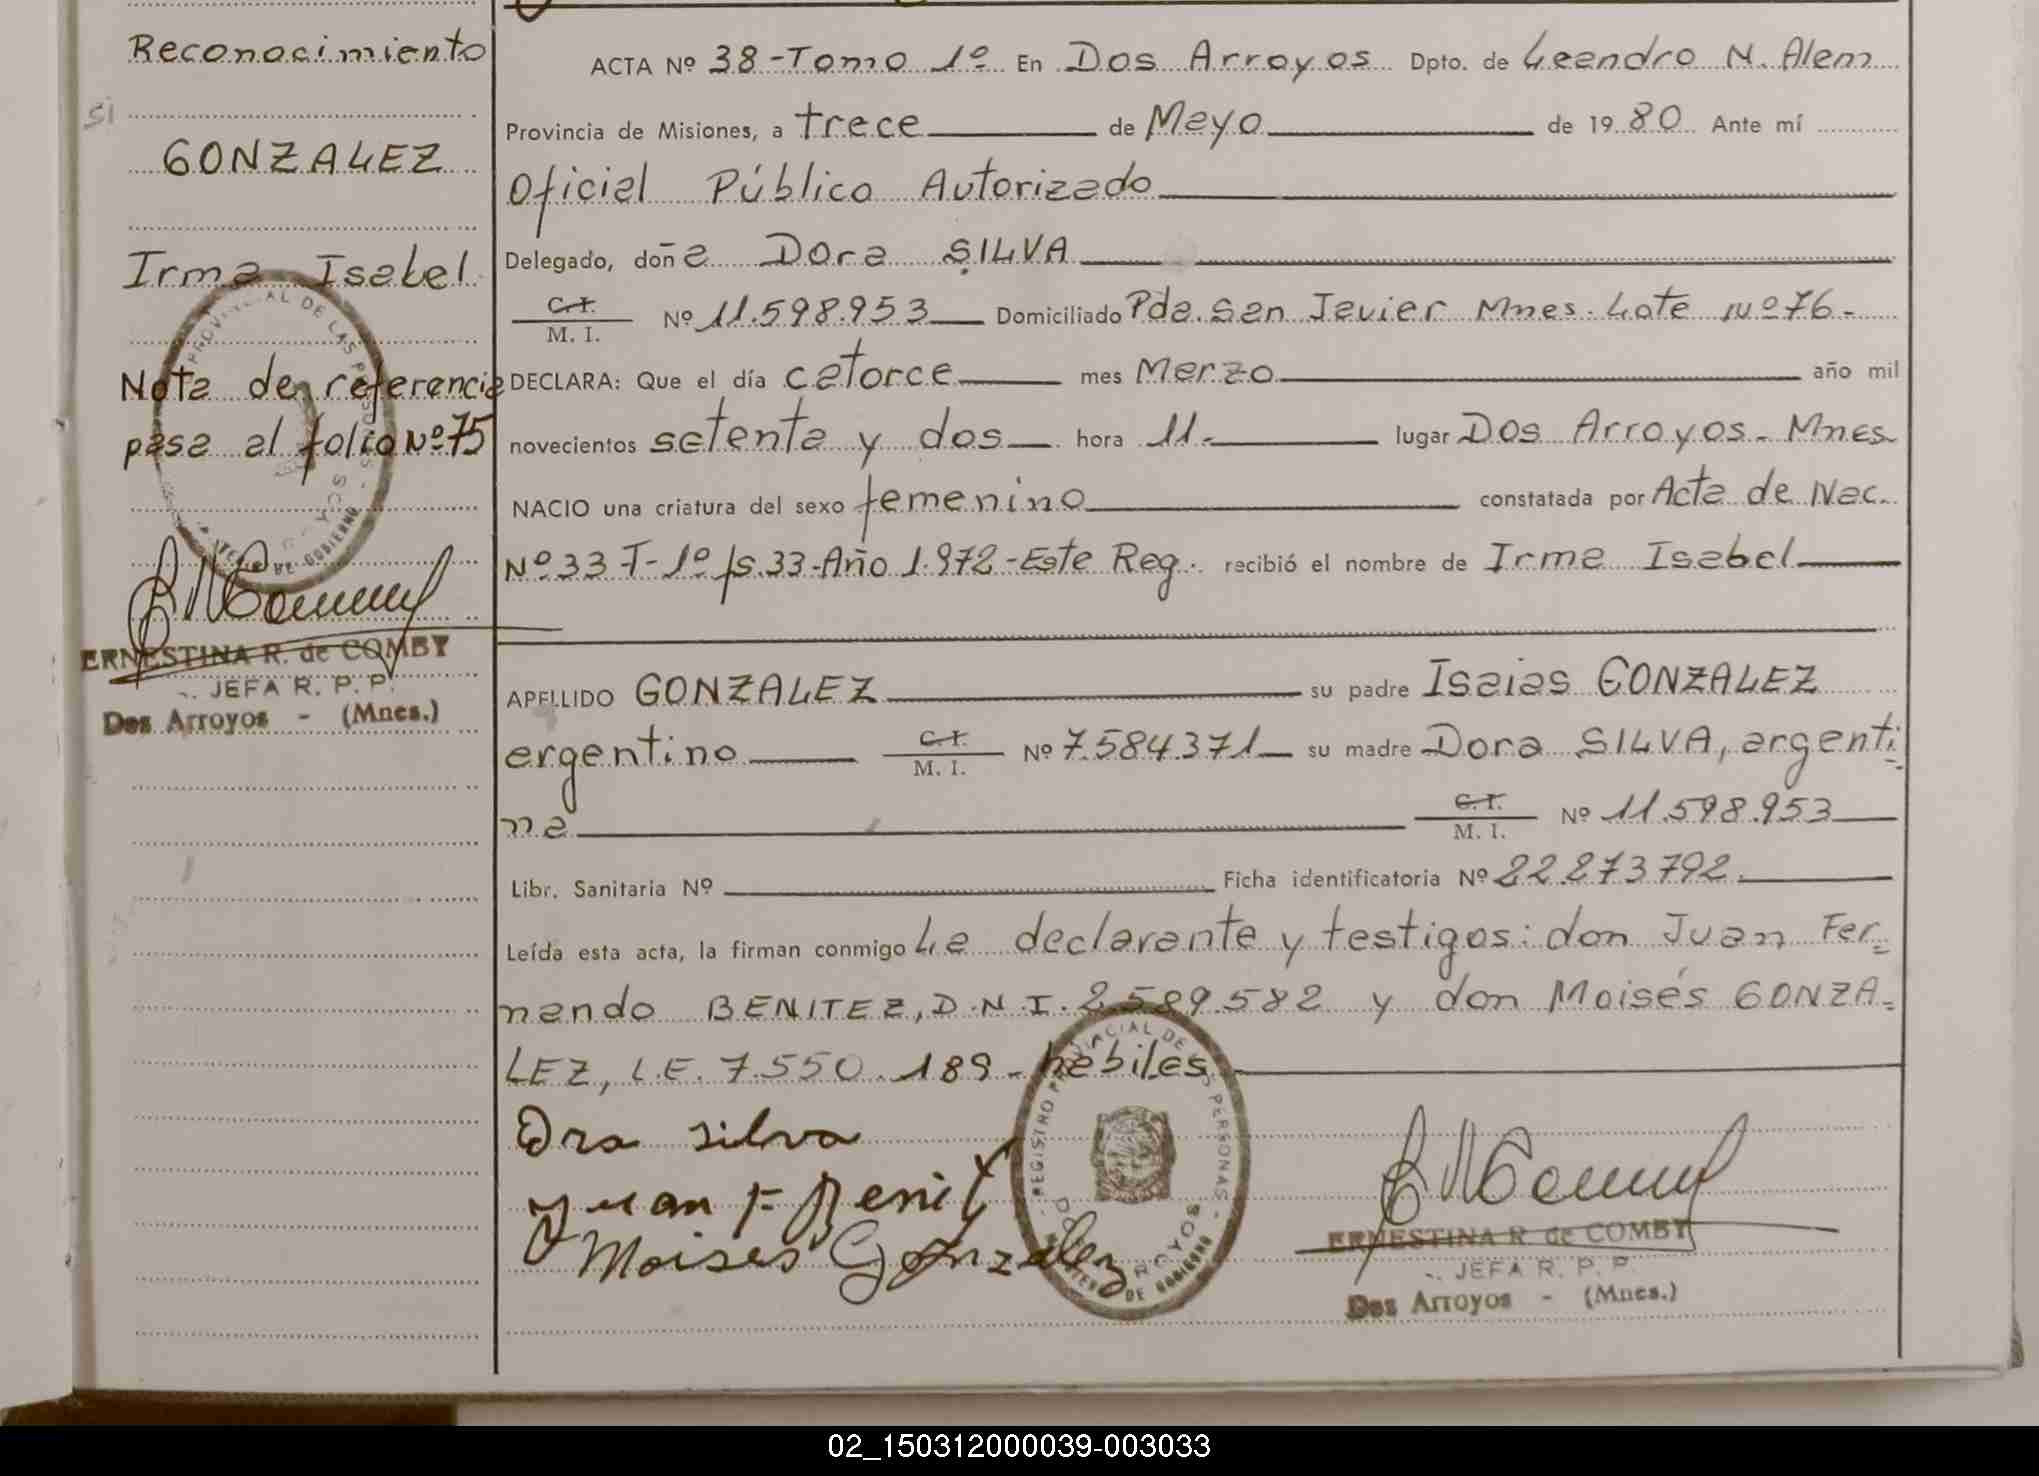 Reconocimiento
si
GONZALEZ
Irma Isabel
Nota de referencia
pasa al folio Nº 75
ERNESTINA R. de COMBY
JEFA R. P. P.
Dos Arroyos - (Mnes.)
ACTA Nº 38-Tomo 1º En Dos Arroyos Dpto. de Leandro N. Alem
Provincia de Misiones, a trece de Mayo de 1980 Ante mí
Oficial Público Autorizado
Delegado, doña Dora SILVA
C.I.
M. I. Nº 11.598.953 Domiciliado Pda. San Javier Mnes. Lote Nº 76-
DECLARA: Que el día catorce mes Marzo año mil
novecientos setenta y dos hora 11- lugar Dos Arroyos- Mnes
NACIO una criatura del sexo femenino constatada por Acta de Nac.
Nº 33 T-1º fs.33-Año 1.972-Este Reg. recibió el nombre de Irma Isabel
APELLIDO GONZALEZ su padre Isaias GONZALEZ
argentino C.I. M. I. Nº 7.584.371 su madre Dora SILVA, argenti-
na C.I. M. I. Nº 11.598.953
Libr. Sanitaria Nº Ficha identificatoria Nº 22.273792.
Leída esta acta, la firman conmigo La declarante y testigos: don Juan Fer-
nando BENITEZ, D.N.I. 2.589.582 y don Moisés GONZA-
LEZ, L.E. 7.550.189- habiles
REGISTRO PROVINCIAL DE LAS PERSONAS
DOS ARROYOS
MINISTERIO DE GOBIERNO
Dra silva
Juan F Benit
Moises Gonzalez
ERNESTINA R. de COMBY
JEFA R. P. P.
Dos Arroyos - (Mnes.)
02_150312000039-003033